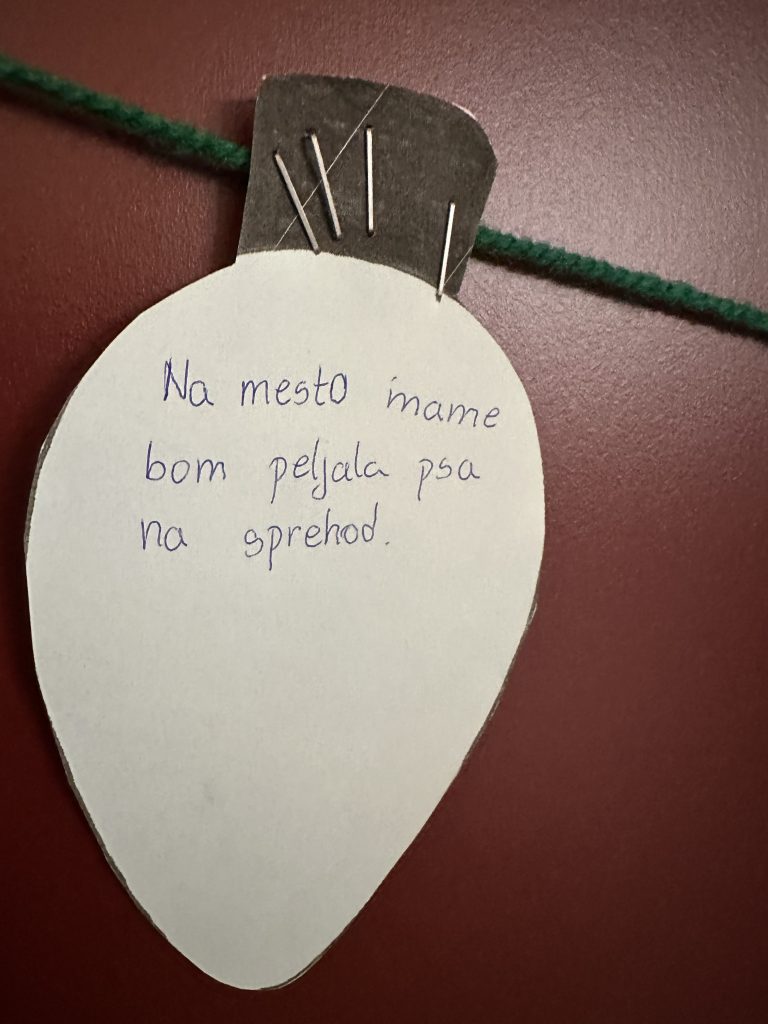 Na mesto mame
bom peljala psa
na sprehod.